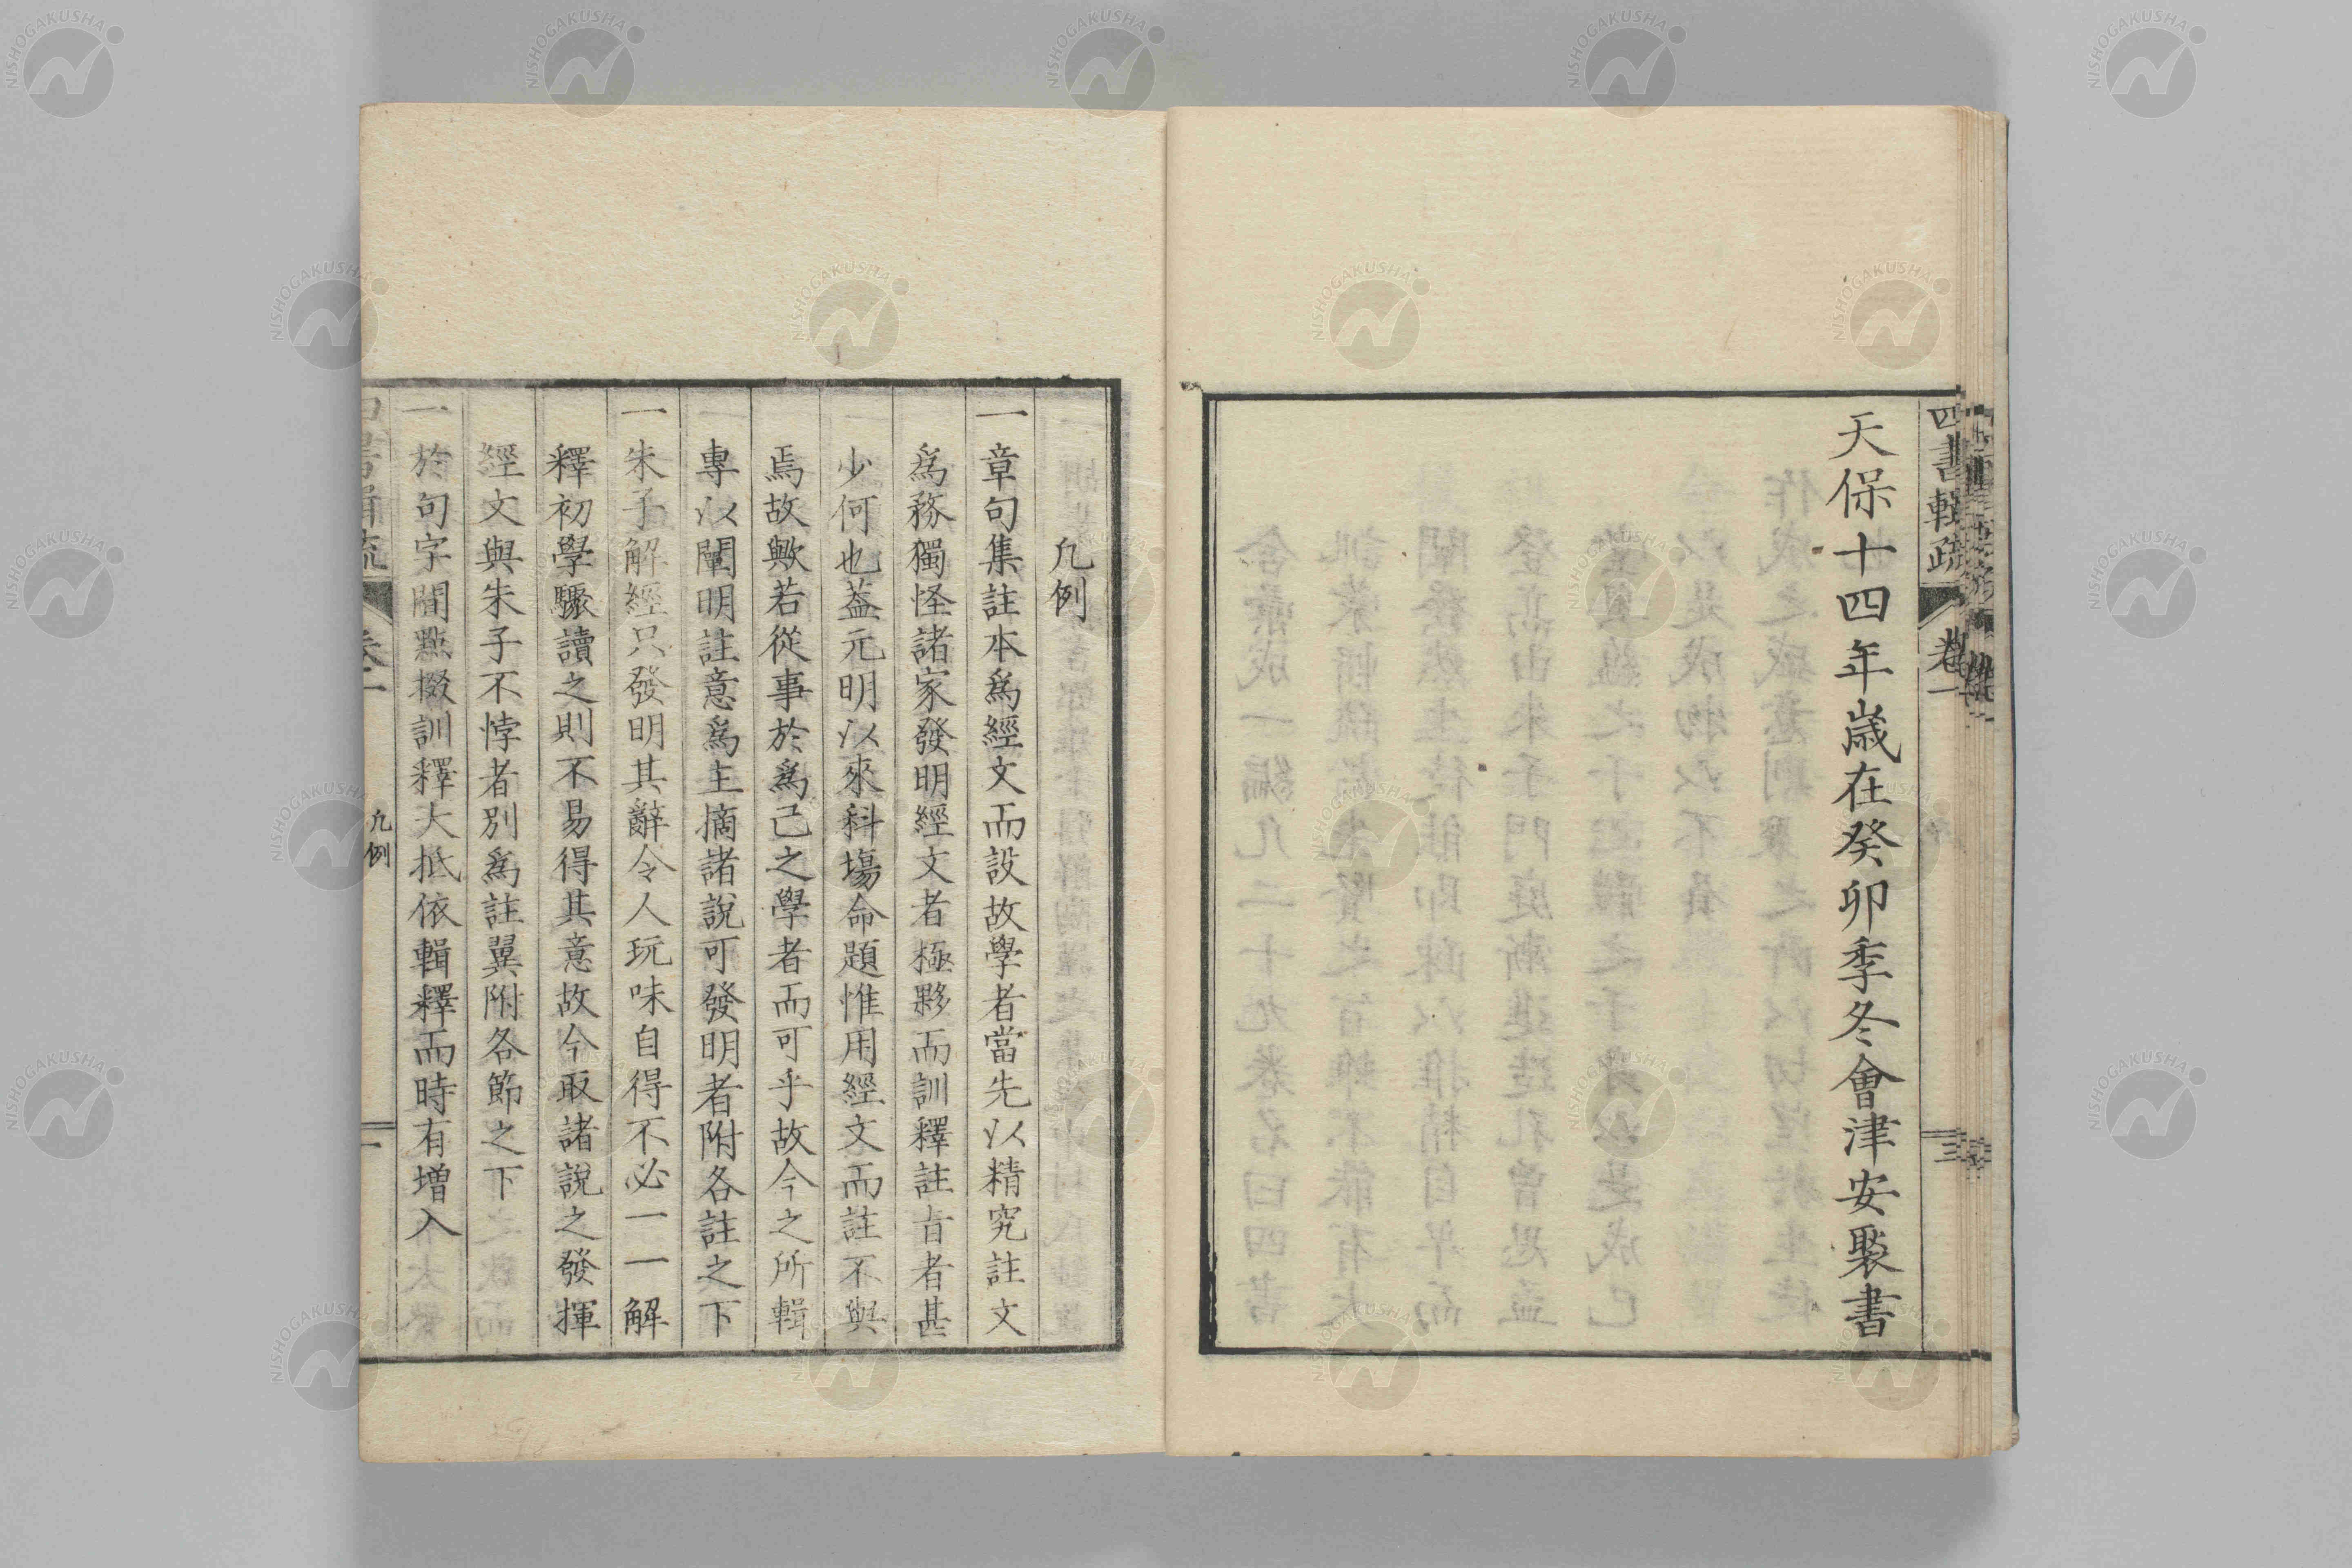 四書輯疏
卷一
三
天保十四年歲在癸卯季冬會津安褧書
凡例
一章句集註本爲經文而設故學者當先以精究註文
爲務獨怪諸家發明經文者極夥而訓釋註者者甚
少何也蓋元明以來科場命題惟用經文而註不與
焉故歟若從事於爲己之學者而可乎故今之所輯
專以闡明註意爲主摘諸說可發明者附各註之下
一朱子解經只發明其辭令人玩味自得不必一一解
釋初學驟讀之則不易得其意故今取諸說之發揮
經文與朱子不悖者別爲註翼附各節之下
一於句字間點掇訓釋大抵依輯釋而時有增入
四書輯疏
卷一
凡例
一
NISHOGAKUSHA